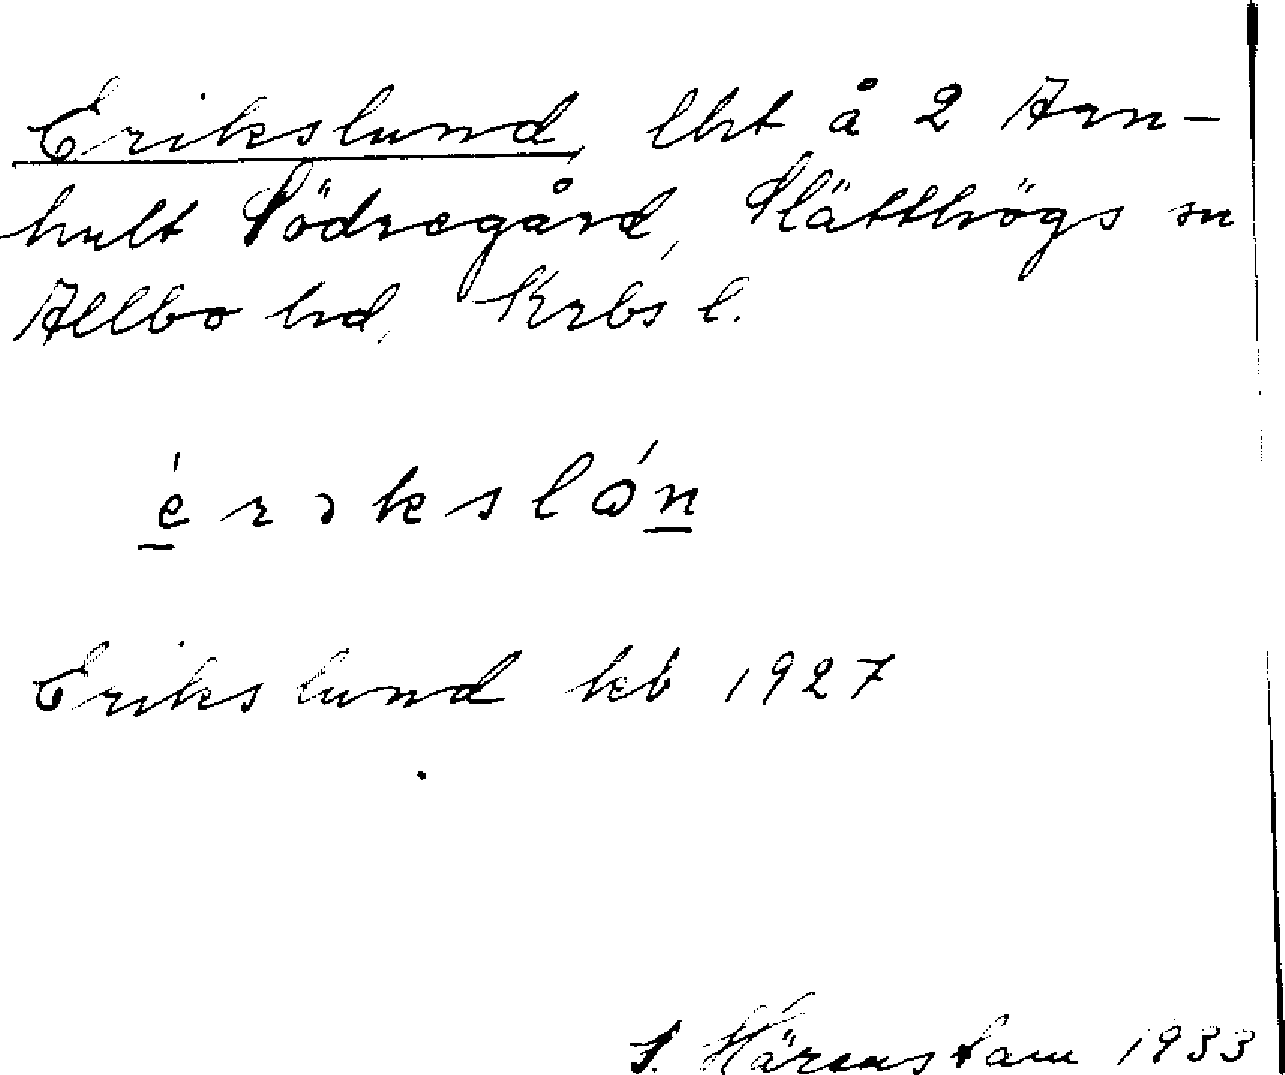 Erikslund, lht å 2 Arn-
hult Södregård, Slätthögs sn
Allbo hd, Krbs l.
érɔkslón
Erikslund kb 1927
S. Härenstam 1933